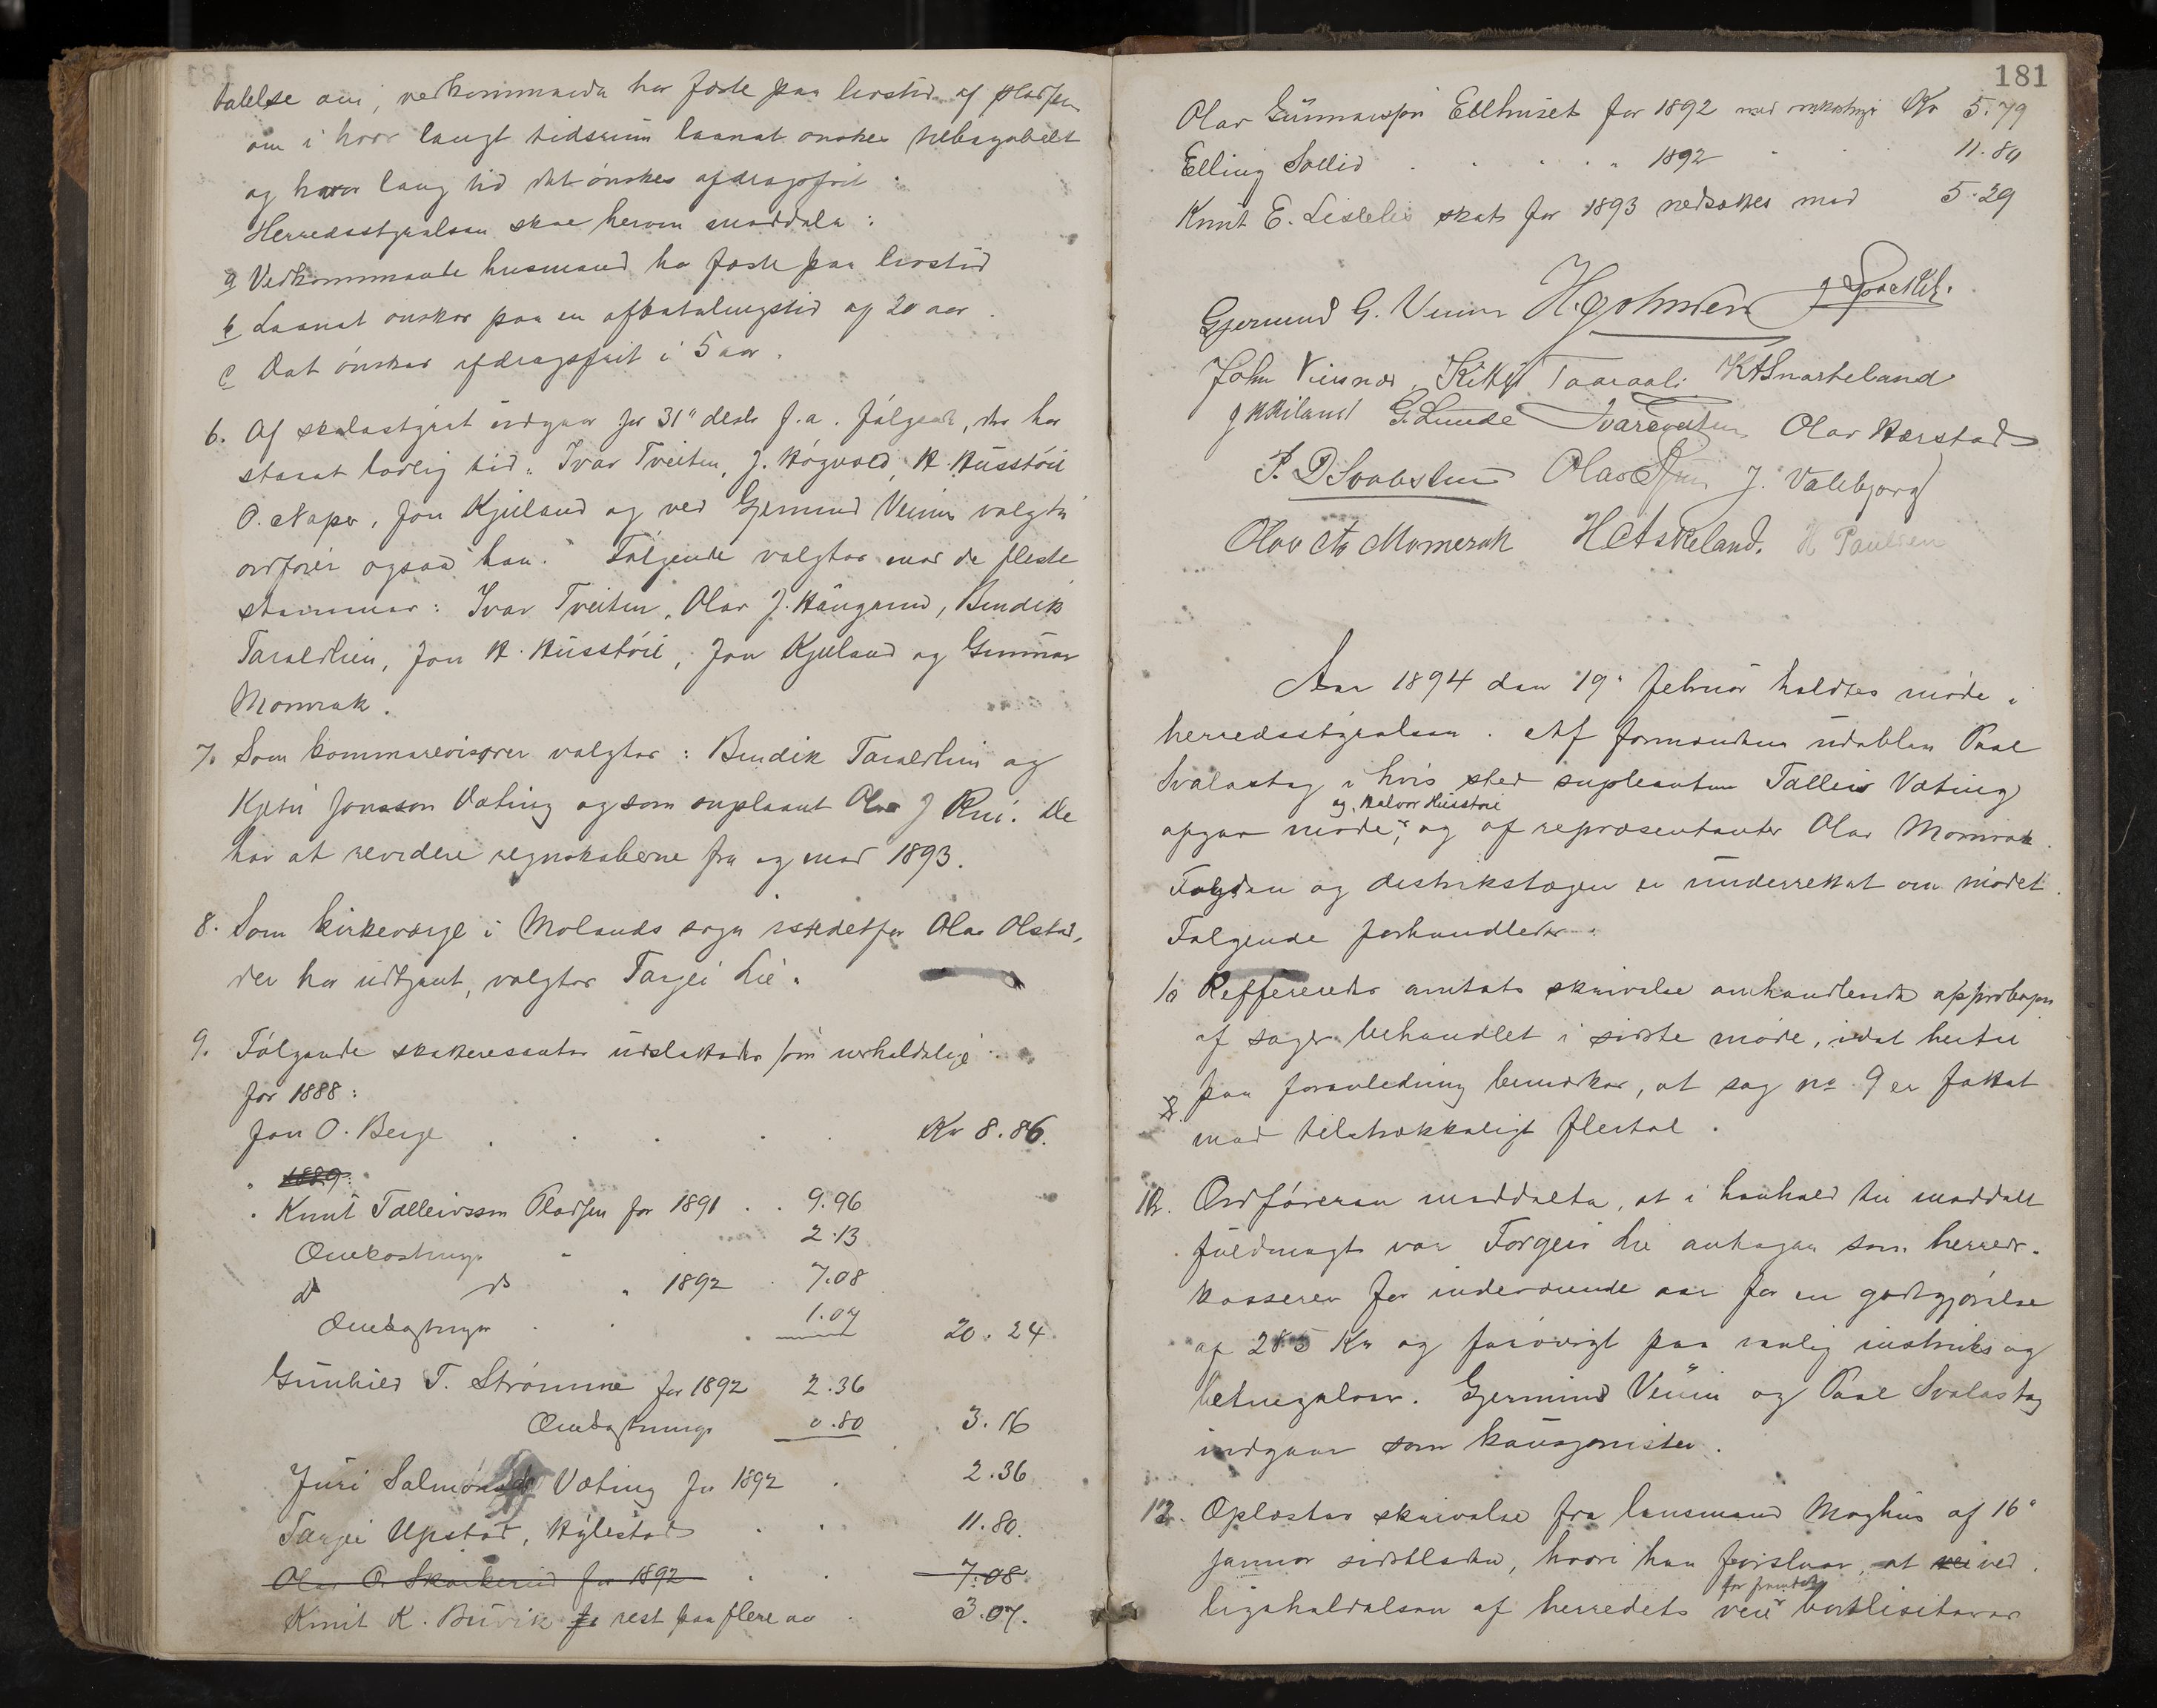 talelse om, vedkommande har fæste paa livstid af pladsen
om i hvor langt tidsrum laanet ønskes tilbagebetalt
og hvor lang tid det ønskes afdragsfrit.
Herredsstyrelsen skal herom meddele:
a Vedkommande husmand ha fæste paa livstid
b Laanet ønskes paa en afbetalingstid af 20 aar.
c Det ønskes afdragsfrit i 5 aar.
6. Af skolestyret udgaar pr 31" desbr f.a. følgende, der har
staaet lovlig tid: Ivar Tveiten, J. Høgvold, H. Husstøil
O. Naper, Jon Kjiland og ved Gjermund Veum valgtes
ordfører ogsaa han. Følgende valgtes med de fleste
stemmer: Ivar Tveiten, Olav J. Haugund, Bendik
Taraldlien, Jon H. Husstøil, Jon Kjiland og Gunnar
Momrak.
7. Som kommunerevisorer valgtes: Bendik Taraldlien og
Kjetil Jonsson Væting og som supleant Olav J Rui. De
har at revidere regnskaberne fra og med 1893.
8. Som kirkeværge i Molands sogn istedetfor Olav Olstad,
der har udtjent, valgtes Targei Lie.
9. Følgende skatterestanter udslettedes som uerholdelige
for 1888:
Jon O. Berge Kr 8.86.
" 1889:
" Knut Talleivsson Pladsen for 1891 . . 9.96
Omkostninger " 2.13
do do " 1892 . 7.08
Omkostninger . . 1.07 20.24.
Gunhild T. Strømme for 1892 2.36
Omkostninger 0.80 3.16
Juri Salmonsd Væting for 1892 . 2.36
Targei Upstad, Hylestad . . 11.80.
Olav O. Skarkerud for 1892 . . 7.08.
Knut K. Buvik fo rest paa flere aar . 3.07.
181
Olav Gunnarsson Eldhuset for 1892 med omkostninger Kr 5.79
Elling Sollid . . . . " 1892 " 11.80
Knut E. Lislelis skat for 1893 nedsættes med 5.29
Gjermund G. Veum H. Johnsen
John Vinsnes, Kittil Taaraali K A Snarteland
J K Kiland G. Lunde Ivar Tveiten Olav Harstad
P. D Svalastuen Olav J. Valebjørg
Olav As Momrak H Askeland. H Paulsen
Aar 1894 den 19" februar holdtes møde i
herredsstyrelsen. Af formændene udeblev Paal
Svalastog i hvis sted supleanten Talleiv Væting
og Halvor Husstøil
afgav møde, og af repræsentanter Olav Momrak.
Fogden og distrikslægen er underrettet om mødet.
Følgende forhandledes:
10 Reffereredes amtets skrivelse omhandlende approbasjon
af sager behandlet i sidste møde, idet hertil
paa foranledning bemerkes, at sag no 9 er fattet
med tilstrækkeligt flertal.
11. Ordføreren meddelte, at i henhold til meddelt
fuldmagt var Torgeir Lie antagen som herreds-
kasserer for inderværende aar for en godtgjørelse
af 285 Kr og forøvrigt paa vanlig instruks og
betingelser. Gjermund Veum og Paal Svalastog
indgaar som kausjonister.
12. Oplæstes skrivelse fra lensmand Moghus af 16"
januar sidstleden, hvori han foreslaar, at vei ved-
for fremtiden
ligeholdelsen af herredets veie bortliciteres